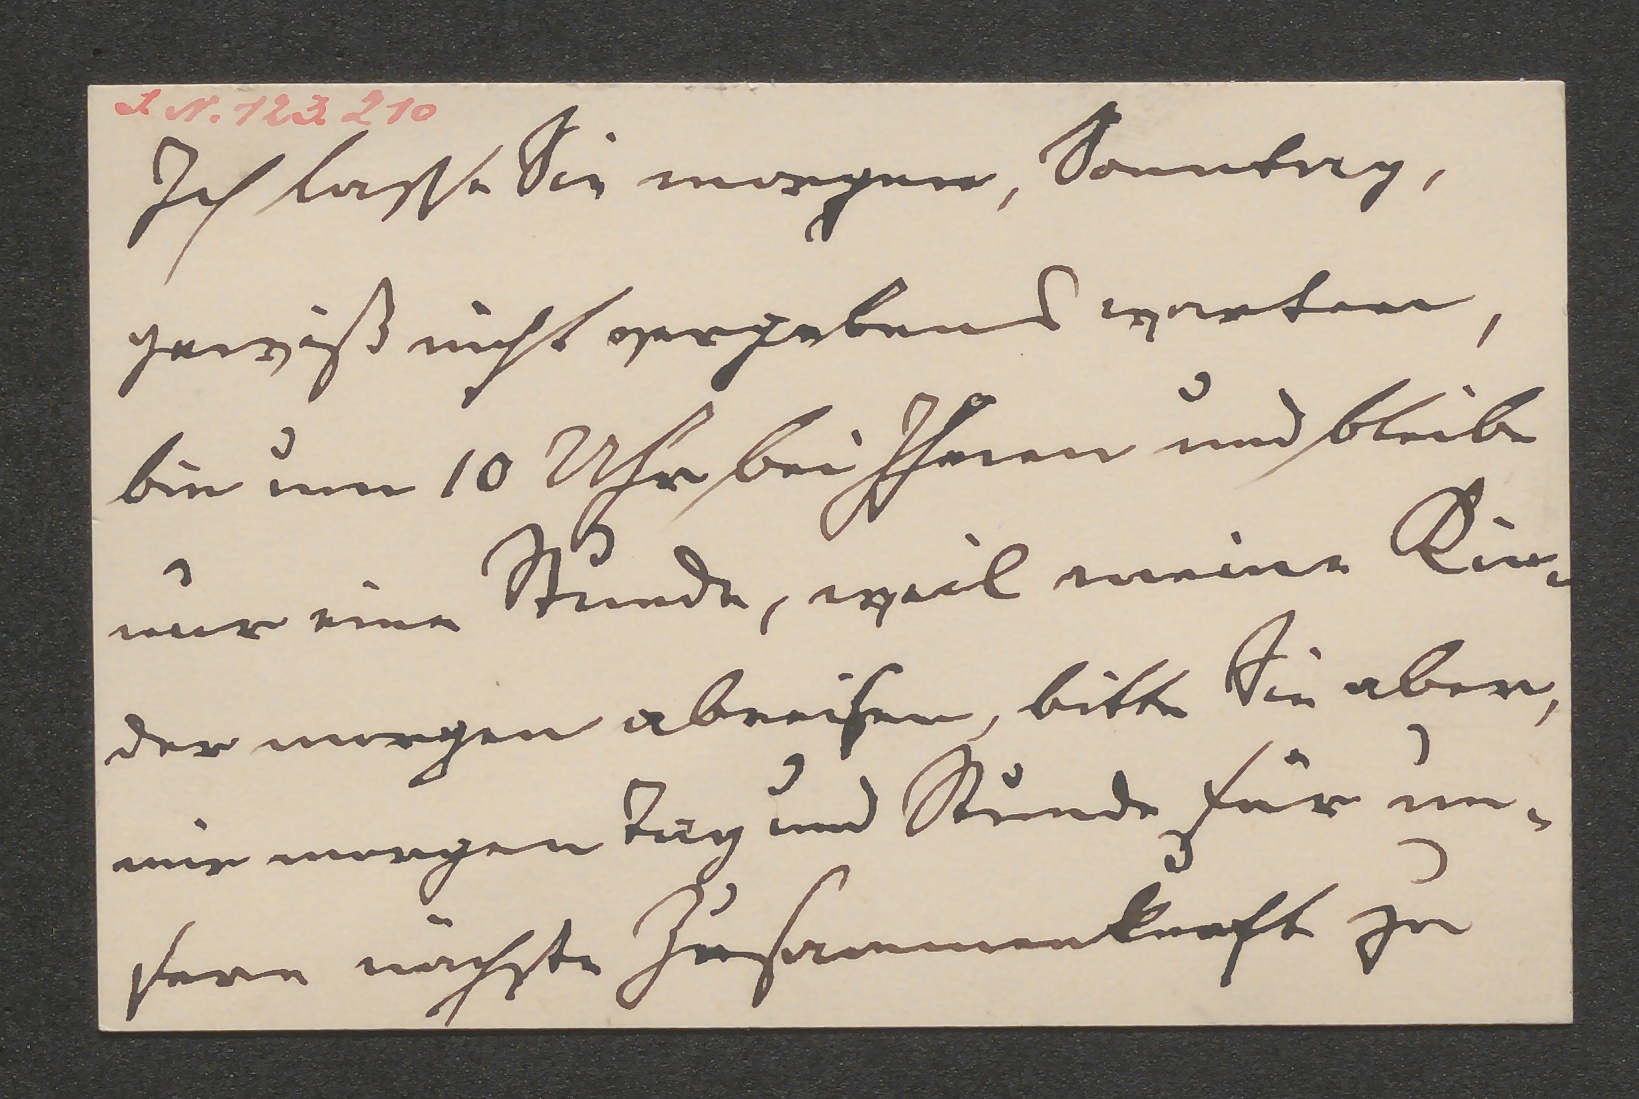 J. N. 123.210
Ich lasse Sie morgen, Sonntag,
gewiß nicht vergebens warten,
bin um 10 Uhr bei Ihnen und bleibe
nur eine Stunde, weil meine Kin-
der morgen abreisen, bitte Sie aber,
mir morgen Tag und Stunde für un-
sere nächste Zusammenkunft zu